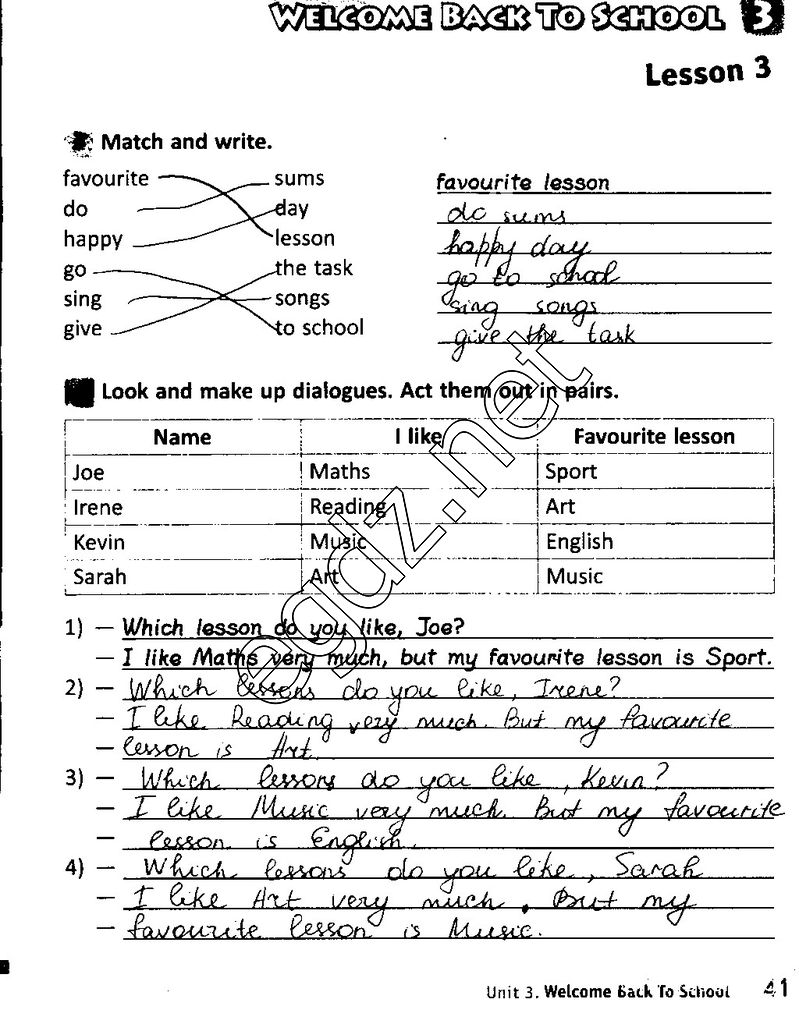 WELCOME BACK TO SCHOOL 3
Lesson 3
Match and write.
favourite sums
do day
happy lesson
go the task
sing songs
give to school
favourite lesson
do sums
happy day
go to school
sing songs
give the task
Look and make up dialogues. Act them out in pairs.
Name I like Favourite lesson
Joe Maths Sport
Irene Reading Art
Kevin Music English
Sarah Art Music
egdz.net
1) – Which lesson do you like, Joe?
– I like Maths very much, but my favourite lesson is Sport.
2) – Which lessons do you like, Irene?
– I like Reading very much. But my favourite
– lesson is Art.
3) – Which lessons do you like, Kevin?
– I like Music very much. But my favourite
– lesson is English.
4) – Which lessons do you like, Sarah
– I like Art very much. But my
– favourite lesson is Music.
Unit 3. Welcome Back To School 41